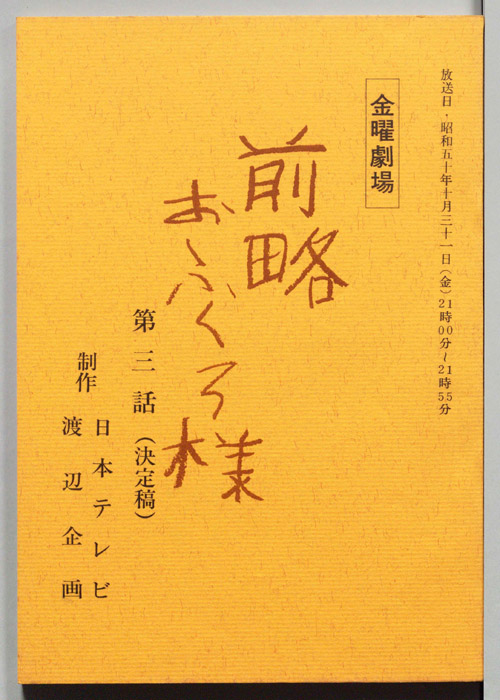 放送日・昭和五十年十月三十一日（金）21時00分～21時55分
金曜劇場
前略
おふくろ様
第三話（決定稿）
制作
日本テレビ
渡辺企画